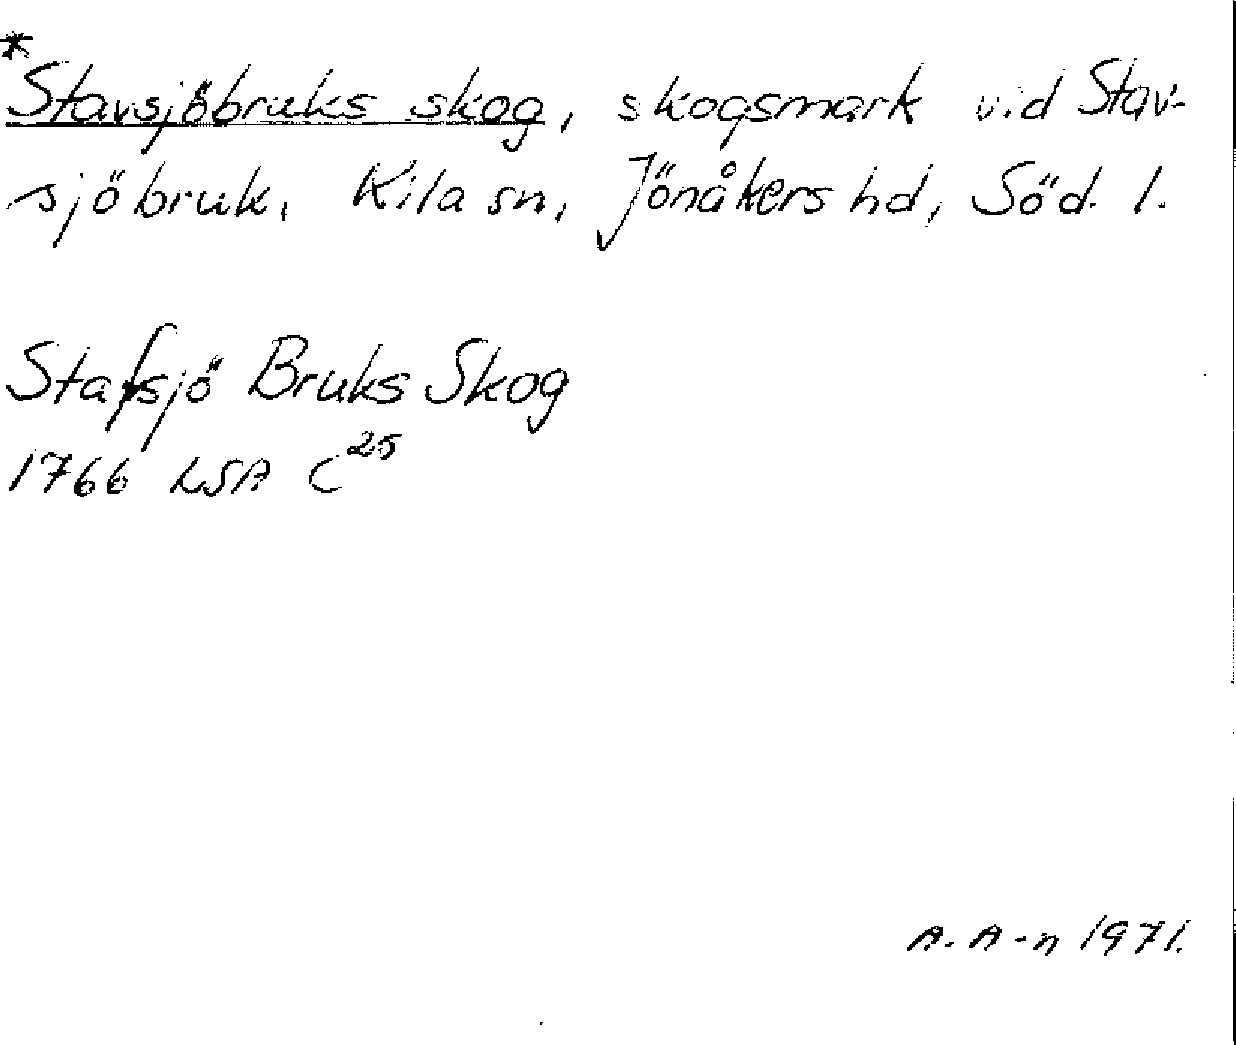 *Stavsjöbruks skog, skogsmark vid Stav-
sjöbruk, Kila sn, Jönåkers hd, Söd. l.
Stafsjö Bruks Skog
1766 LSA C25
A. A-n 1971.